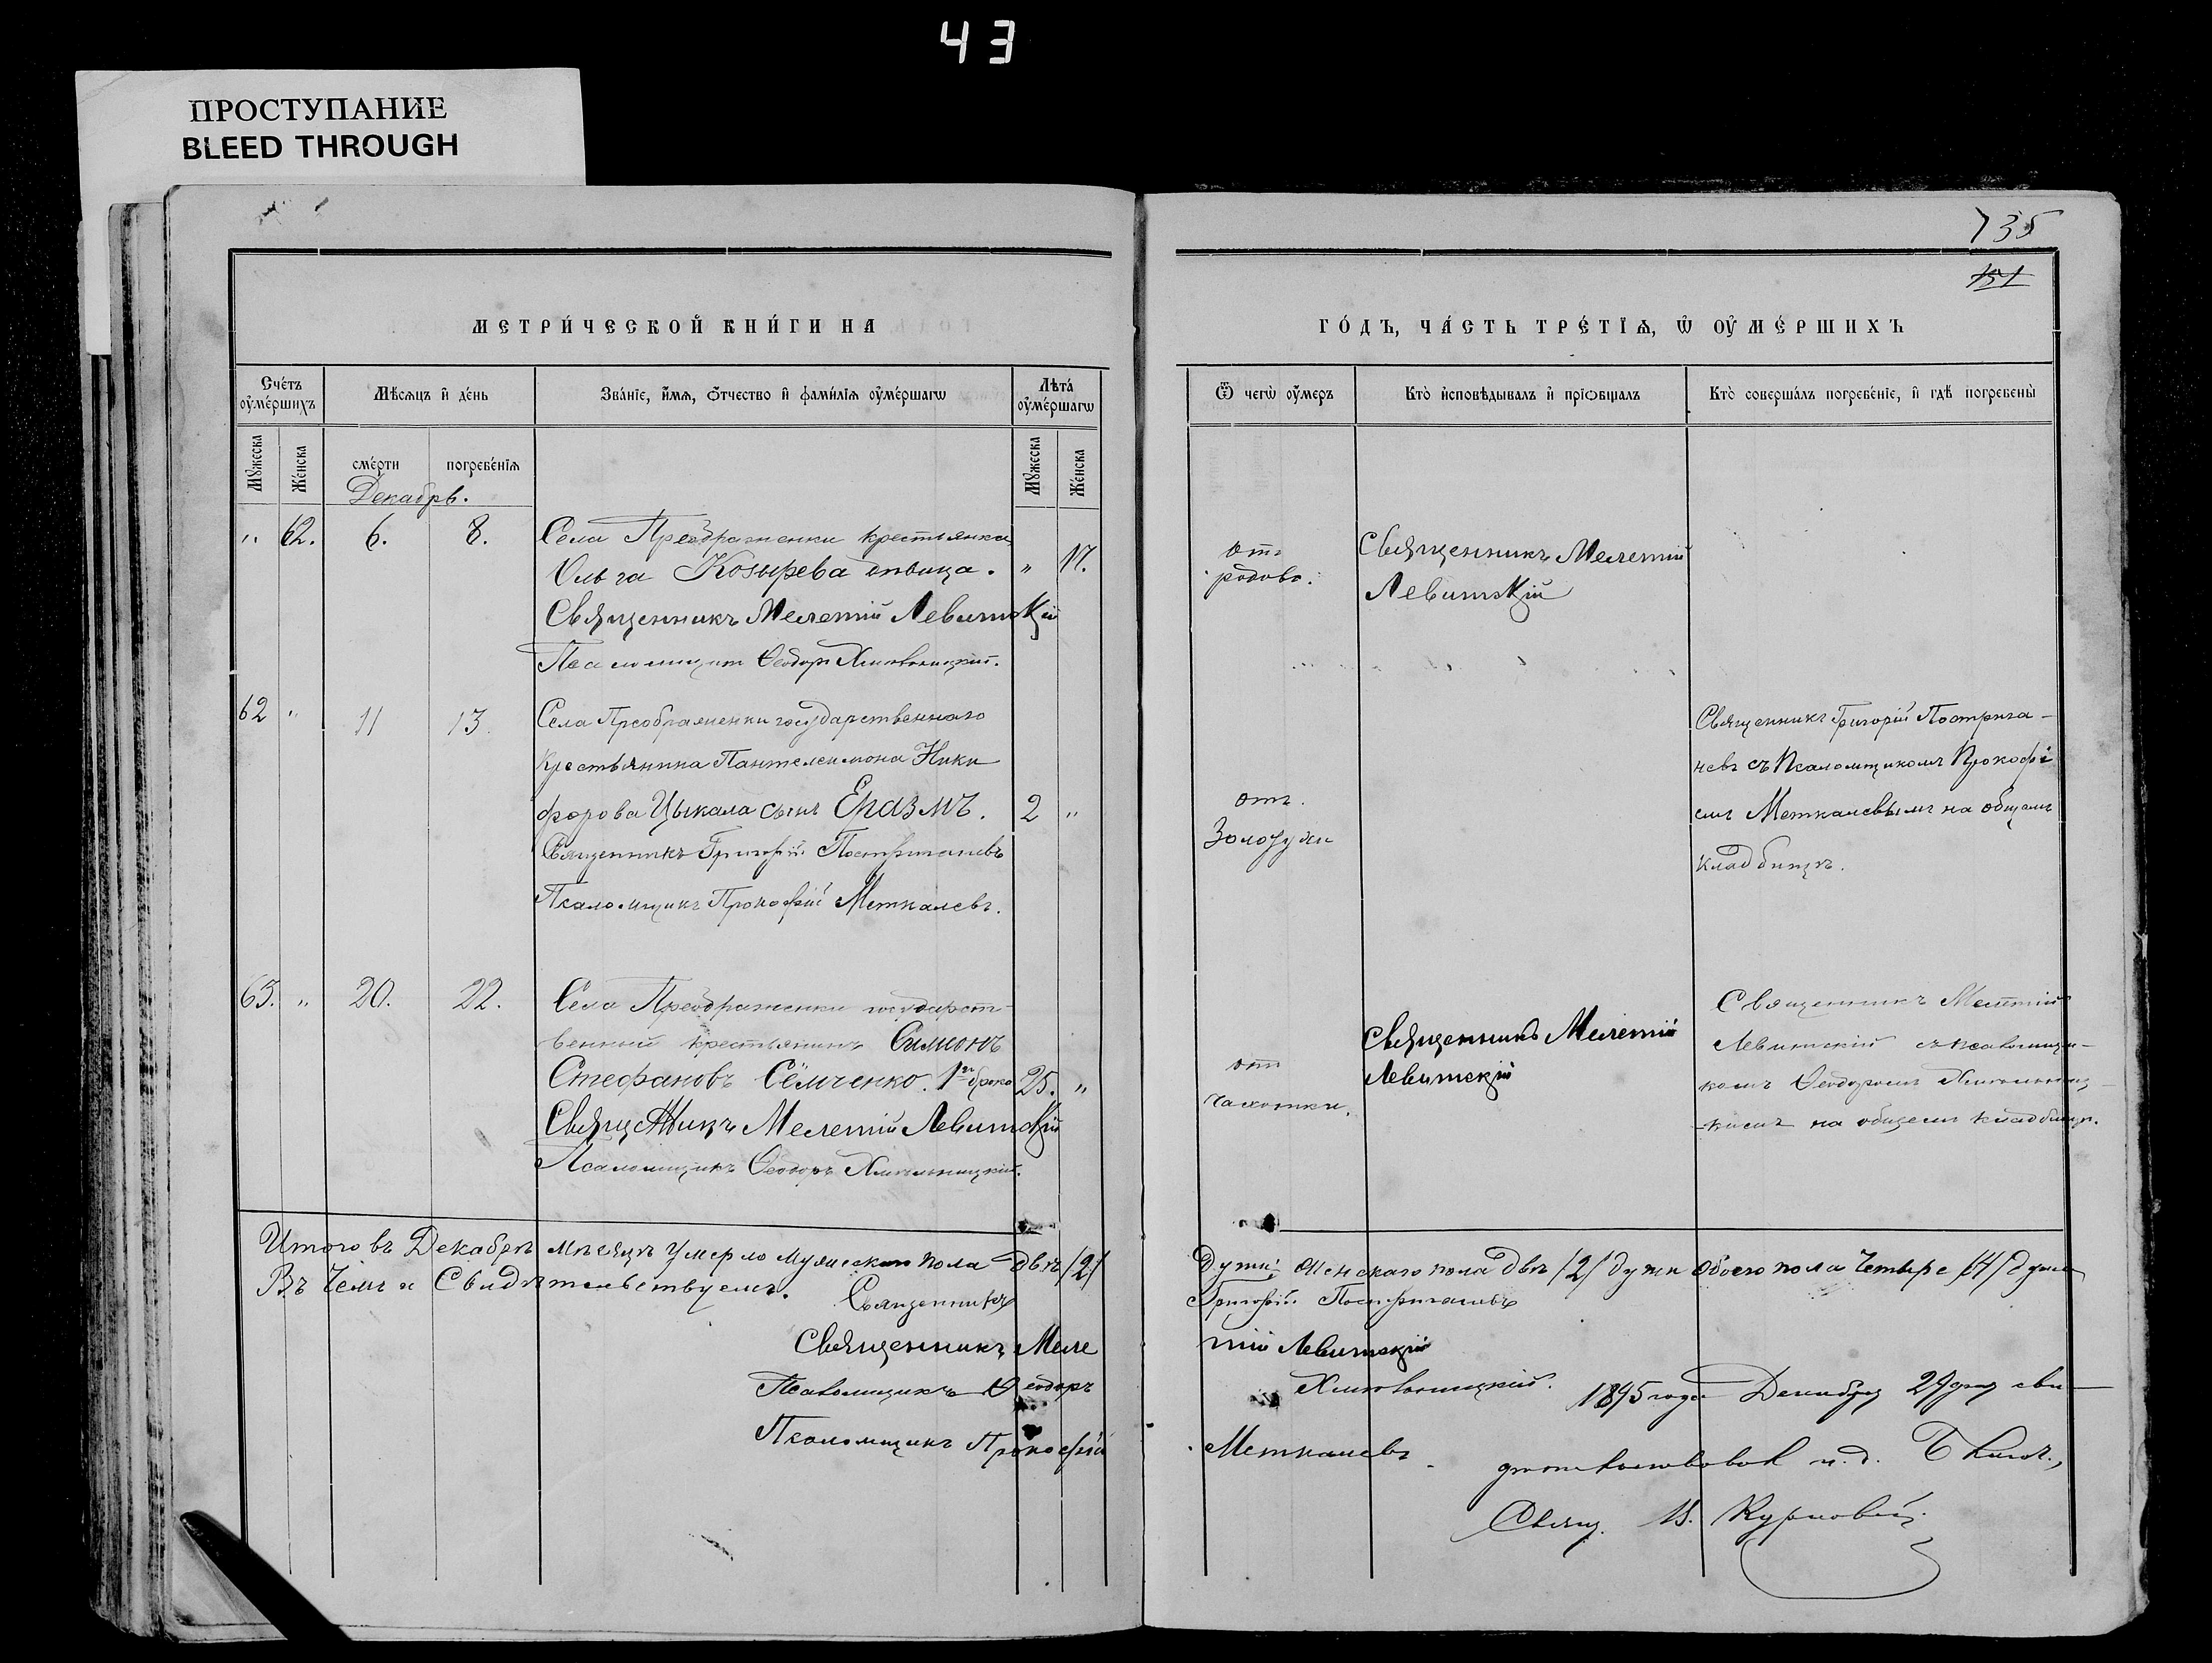 43
ПРОСТУПАНИЕ
BLEED THROUGH
735
151
МЕТРИ́ЧЕСКОЙ КНИ́ГИ НА
ГО́ДЪ, ЧА́СТЬ ТРЕ́ТЇѦ, Ѽ ОУ҆МЕ́РШИХЪ
Сче́тъ оу҆ме́ршихъ
Мѣ́сѧцъ и҆ де́нь
Зва́нїе, и҆́мѧ, ѻ҆́тчество и҆ фами́лїѧ оу҆ме́ршагѡ
Лѣта̀ оу҆ме́ршагѡ
Ѿ чегѡ̀ оу҆́меръ
Кто̀ и҆сповѣ́дывалъ и҆ прїѡбща́лъ
Кто̀ соверша́лъ погребе́нїе, и҆ гдѣ̀ погребены̀
Мꙋ́жеска
Же́нска
сме́рти
погребе́нїѧ
Мꙋ́жеска
Же́нска
Декабрь.
" 62. 6. 8. Села Преображенки крестьянка
Ольга Козырева дѣвица. " 17.
Священникъ Мелетій Левитскій
Псаломщикъ Ѳеодоръ
отъ
родовъ.
Священникъ Мелетій
Левитскій
62 " 11 13 Села Преображенки государственнаго
крестьянина Пантелеимона Ники
форова Цыкала сынъ Еразмъ. 2 "
Священникъ Григорій Постригачевъ
Псаломщикъ Прокофій Меткалевъ.
отъ
Золотухи
Священникъ Григорій Постига-
чевъ съ Псаломщикомъ Прокофі
емъ Меткалевымъ на общемъ
кладбищѣ.
63. " 20. 22. Села Преображенки государст-
венный крестьянинъ Симеонъ
Стефановъ Сёмченко. 1го брака 25. "
Священникъ Мелетій Левитскій
Псаломщикъ Ѳеодоръ Хмѣльницкій.
отъ
чахотки.
Священникъ Мелетій
Левитскій
Священникъ Мелетій
Левитскій съ псаломщи-
комъ Ѳеодоромъ Хмѣльниц-
кимъ на общемъ кладбищѣ.
Итого въ Декабрѣ мѣсяцѣ умерло мужеского пола двѣ /2/ души; женскаго пола двѣ /2/ души обоего пола четыре /4/ души
Въ чемъ и свидѣтельствуемъ.
Священникъ Григорій Постригачевъ
Священникъ Мелетій Левитскій
Псаломщикъ Ѳеодоръ Хмѣльницкій.
Псаломщикъ Прокофій Меткалевъ.
1895 года Декабря 29 дня сви-
дѣтельствовалъ и. д. Благ.,
Свящ.